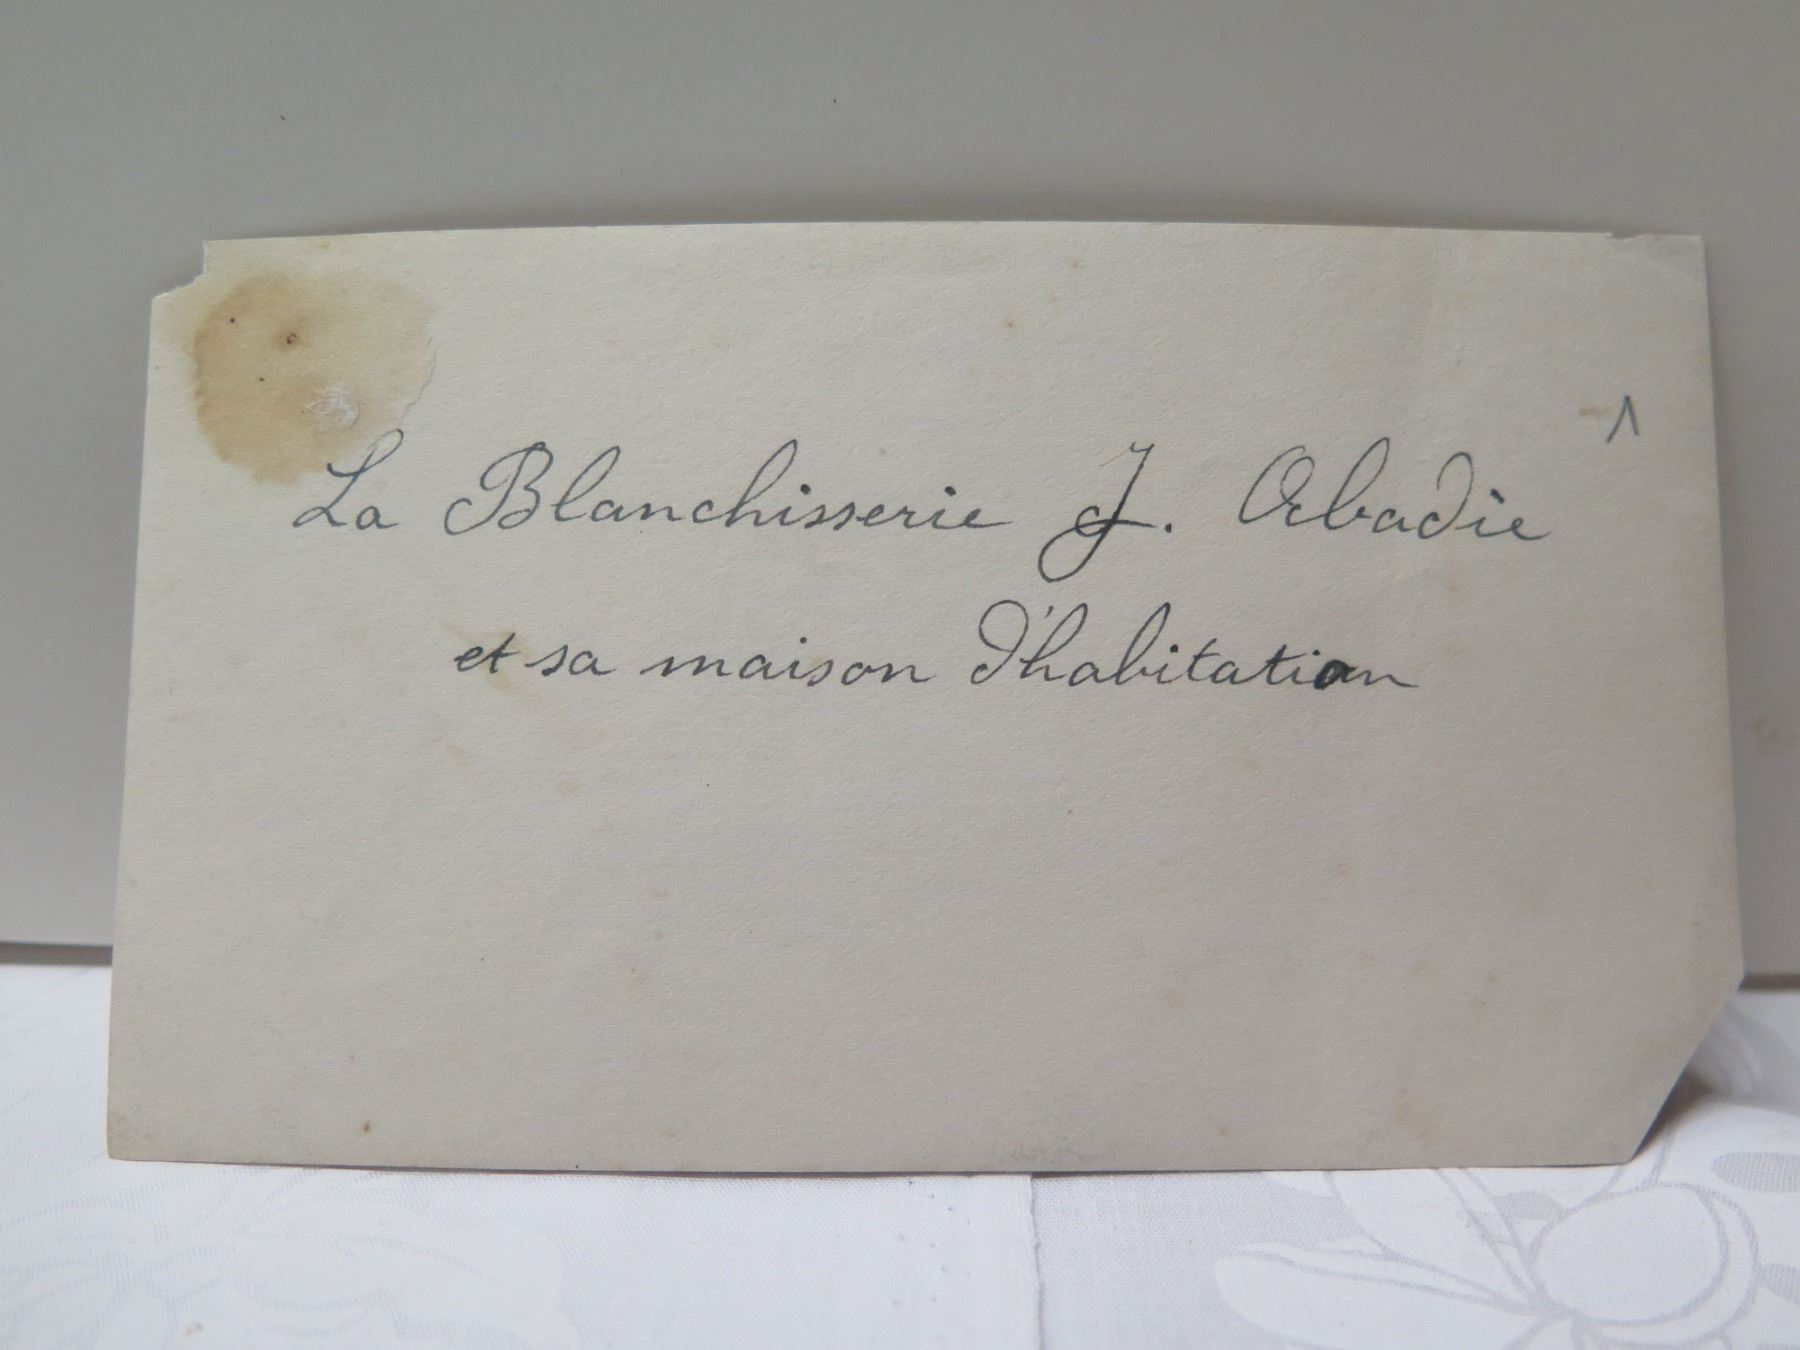 La Blanchisserie J. Abadie
et sa maison d'habitation